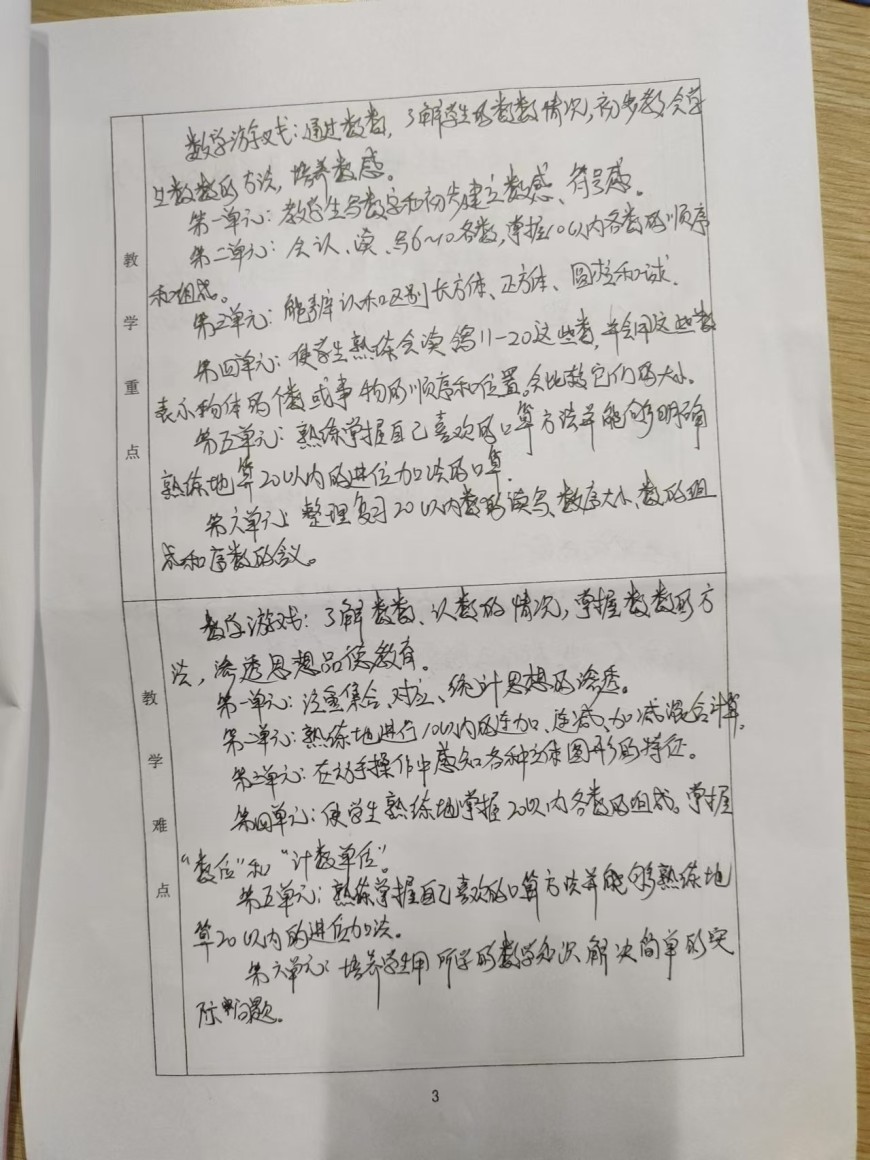 教学重点
数学游戏:通过数数,了解学生的数数情况,初步教会学
生数数的方法,培养数感。
第一单元:教学生写数字和初步建立数感、符号感。
第二单元:会认、读、写6~10各数,掌握10以内各数的顺序
和组成。
第三单元:能辨认和区别长方体、正方体、圆柱和球.
第四单元:使学生熟练会读写11-20这些数,并会用这些数
表示物体的个数或事物的顺序和位置。会比较它们的大小。
第五单元:熟练掌握自己喜欢的口算方法并能够明确
熟练地算20以内的进位加法的口算.
第六单元:整理复习20以内数的读写、数序大小、数的组
成和序数的含义。
教学难点
数学游戏:了解数数、认数的情况,掌握数数的方
法,渗透思想品德教育。
第一单元:注重集合、对应、统计思想的渗透。
第二单元:熟练地进行10以内的连加、连减、加减混合计算。
第三单元:在动手操作中感知各种立体图形的特征。
第四单元:使学生熟练地掌握20以内各数的组成。掌握
“数位”和“计数单位”。
第五单元:熟练掌握自己喜欢的口算方法并能够熟练地
算20以内的进位加法。
第六单元:培养学生用所学的数学知识解决简单的实
际问题。
3